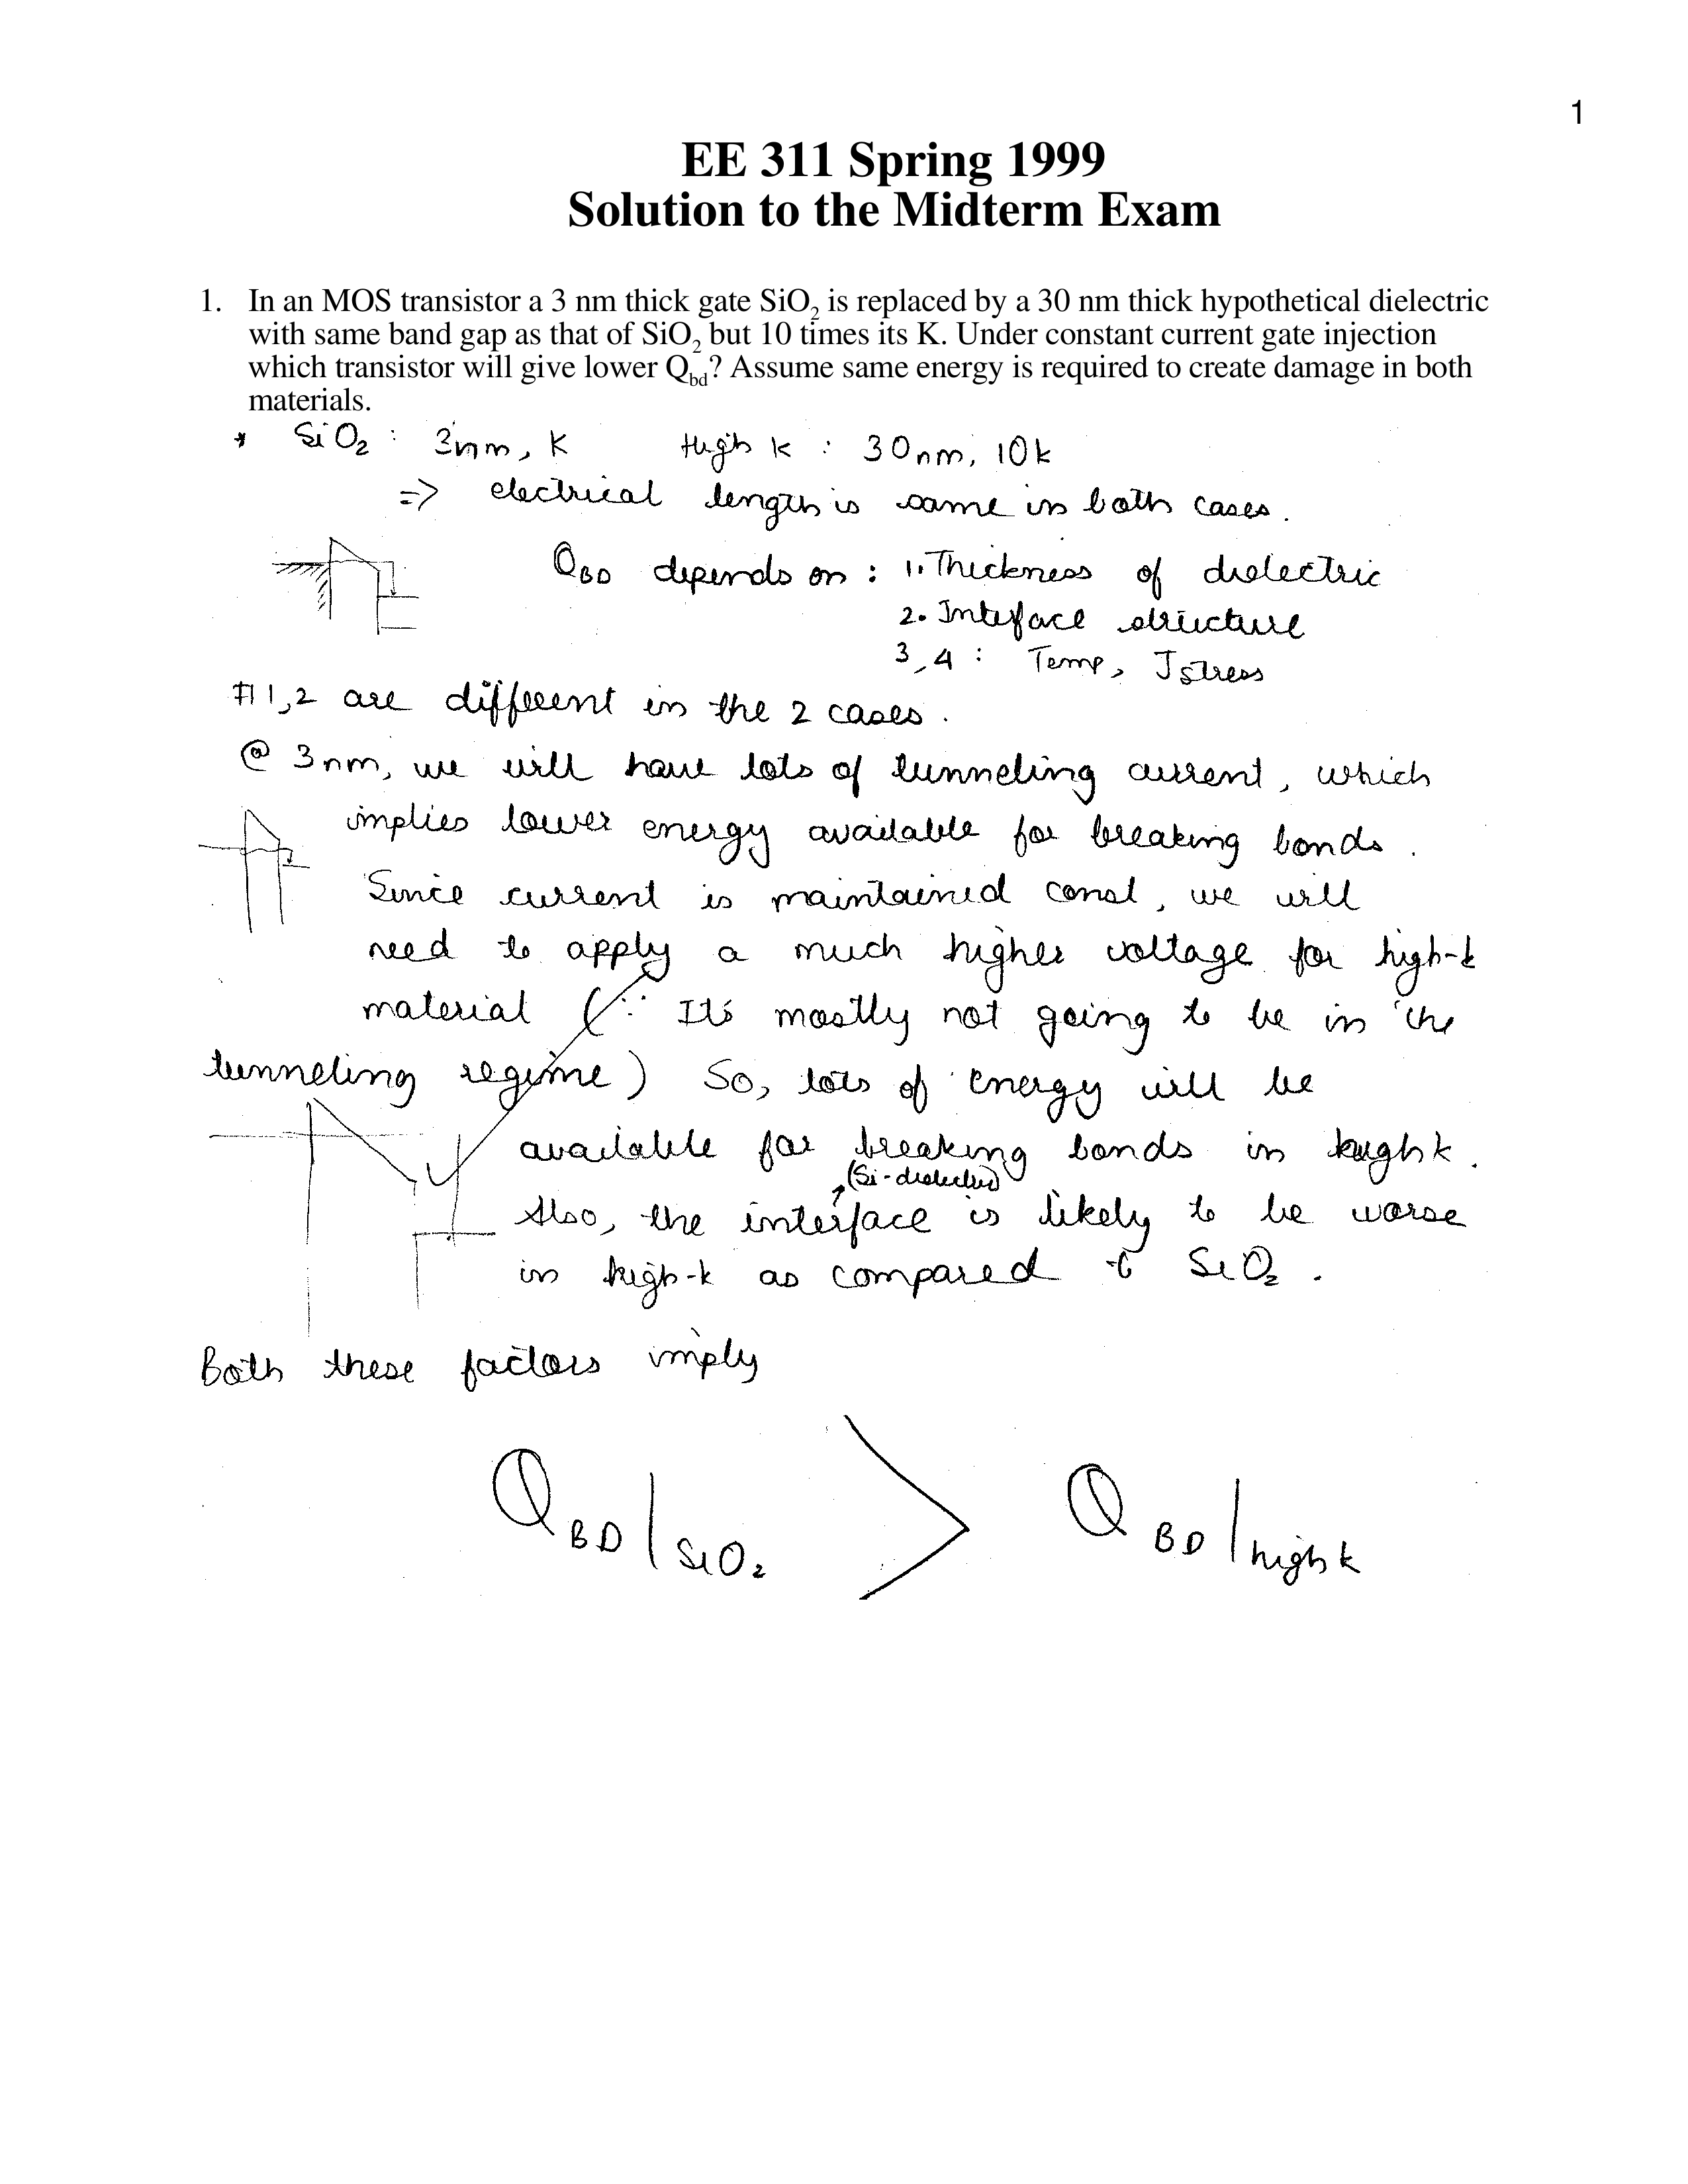 1
EE 311 Spring 1999
Solution to the Midterm Exam
1. In an MOS transistor a 3 nm thick gate SiO₂ is replaced by a 30 nm thick hypothetical dielectric
with same band gap as that of SiO₂ but 10 times its K. Under constant current gate injection
which transistor will give lower Q_bd? Assume same energy is required to create damage in both
materials.
* SiO₂ : 3nm, K High k : 30nm, 10k
=> electrical length is same in both cases.
Q_BD depends on : 1. Thickness of dielectric
2. Interface structure
3,4 : Temp, Jstress
#1,2 are different in the 2 cases.
@ 3nm, we will have lots of tunneling current, which
implies lower energy available for breaking bonds.
Since current is maintained const, we will
need to apply a much higher voltage for high-k
material (∵ Its mostly not going to be in the
tunneling regime) So, lots of energy will be
available for breaking bonds in high k.
(Si-dielectric)
Also, the interface is likely to be worse
in high-k as compared to SiO₂.
Both these factors imply
Q_BD|SiO₂ > Q_BD|high k